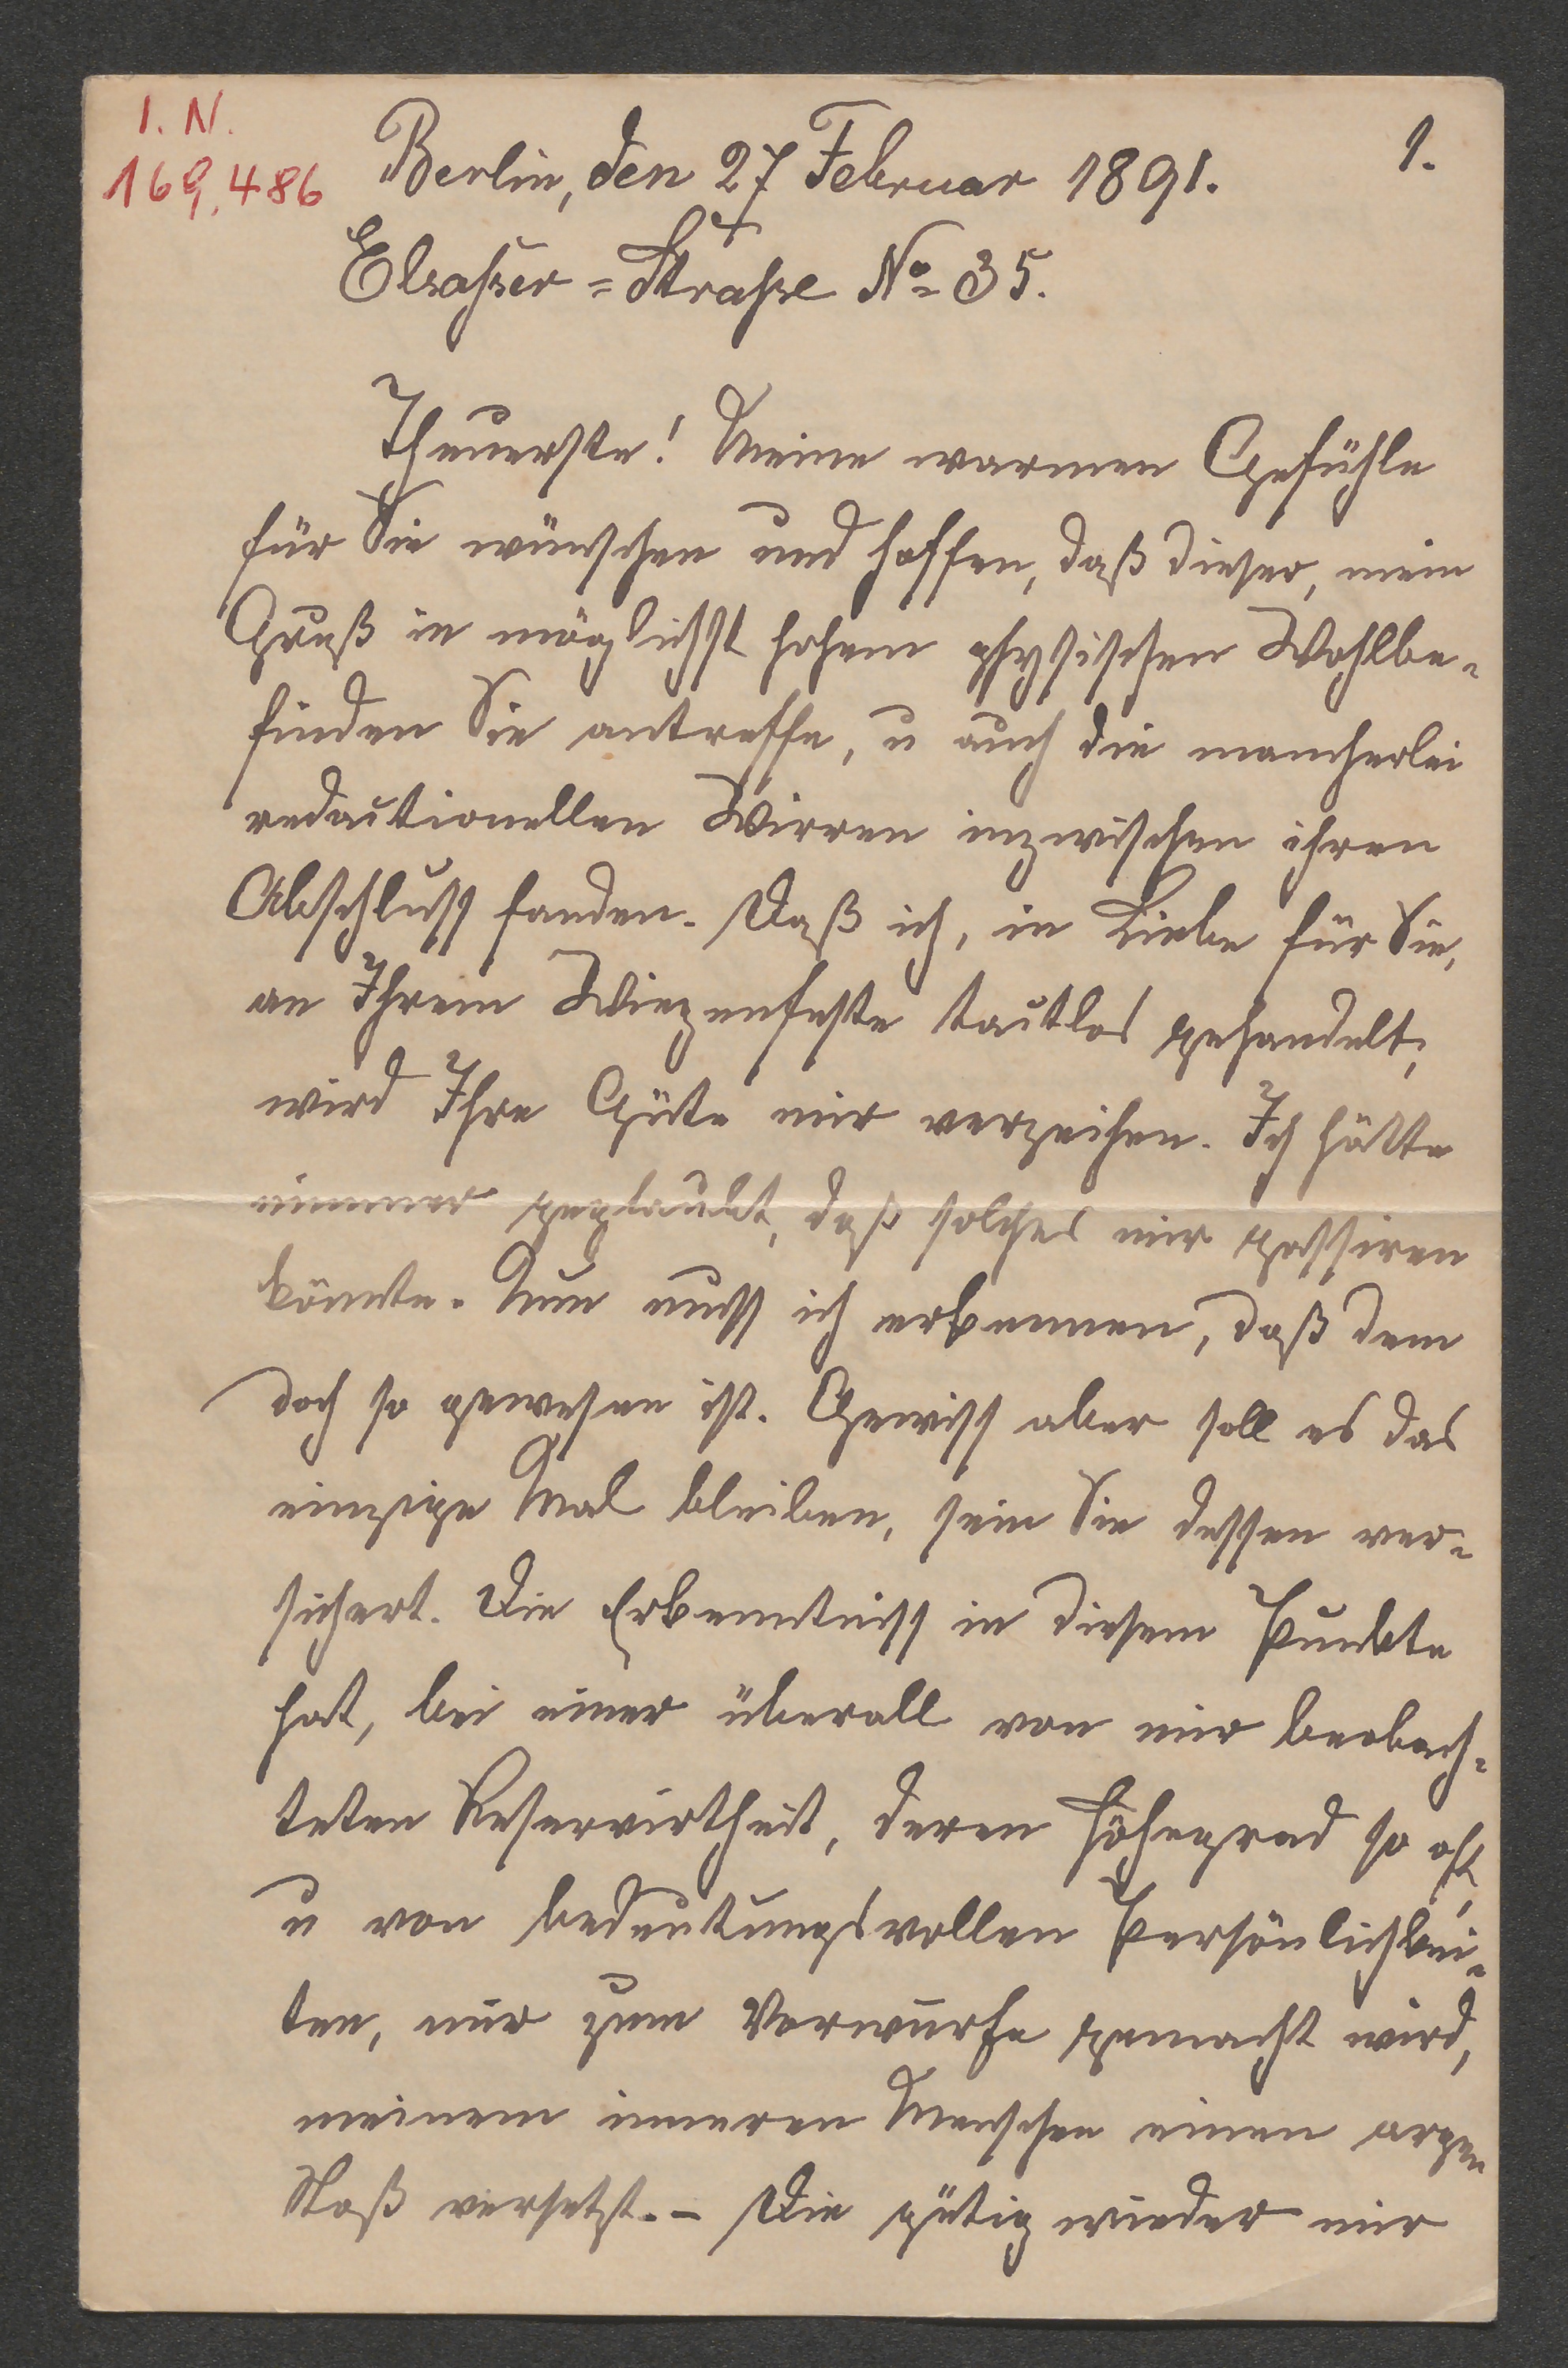 I. N.
169,486
Berlin, den 27 Februar 1891.
1.
Elsaßer=Straße No 35.
Theuerste! Meine warmen Gefühle
für Sie wünschen und hoffen, daß dieser, mein
Gruß in möglichst hohem physischen Wohlbe-
finden Sie antreffe, u auch die mancherlei
redactionellen Wirren inzwischen ihren
Abschluss fanden. Daß ich, in Liebe für Sie,
an Ihrem Wiegenfeste tactlos gehandelt,
wird Ihre Güte mir verzeihen. Ich hätte
nimmer geglaubt, daß solches mir passiren
könnte. Nun muss ich erkennen, daß dem
doch so gewesen ist. Gewiss aber soll es das
einzige Mal bleiben, sein Sie dessen ver-
sichert. Die Erkenntniss in diesem Punkte
hat, bei einer überall von mir beobach-
teten Reservirtheit, deren Höhegrad so oft,
u von bedeutungsvollen Persönlichkei-
ten, mir zum Vorwurfe gemacht wird,
meinem inneren Menschen einen argen
Stoß versetzt. – Die gütig wieder mir